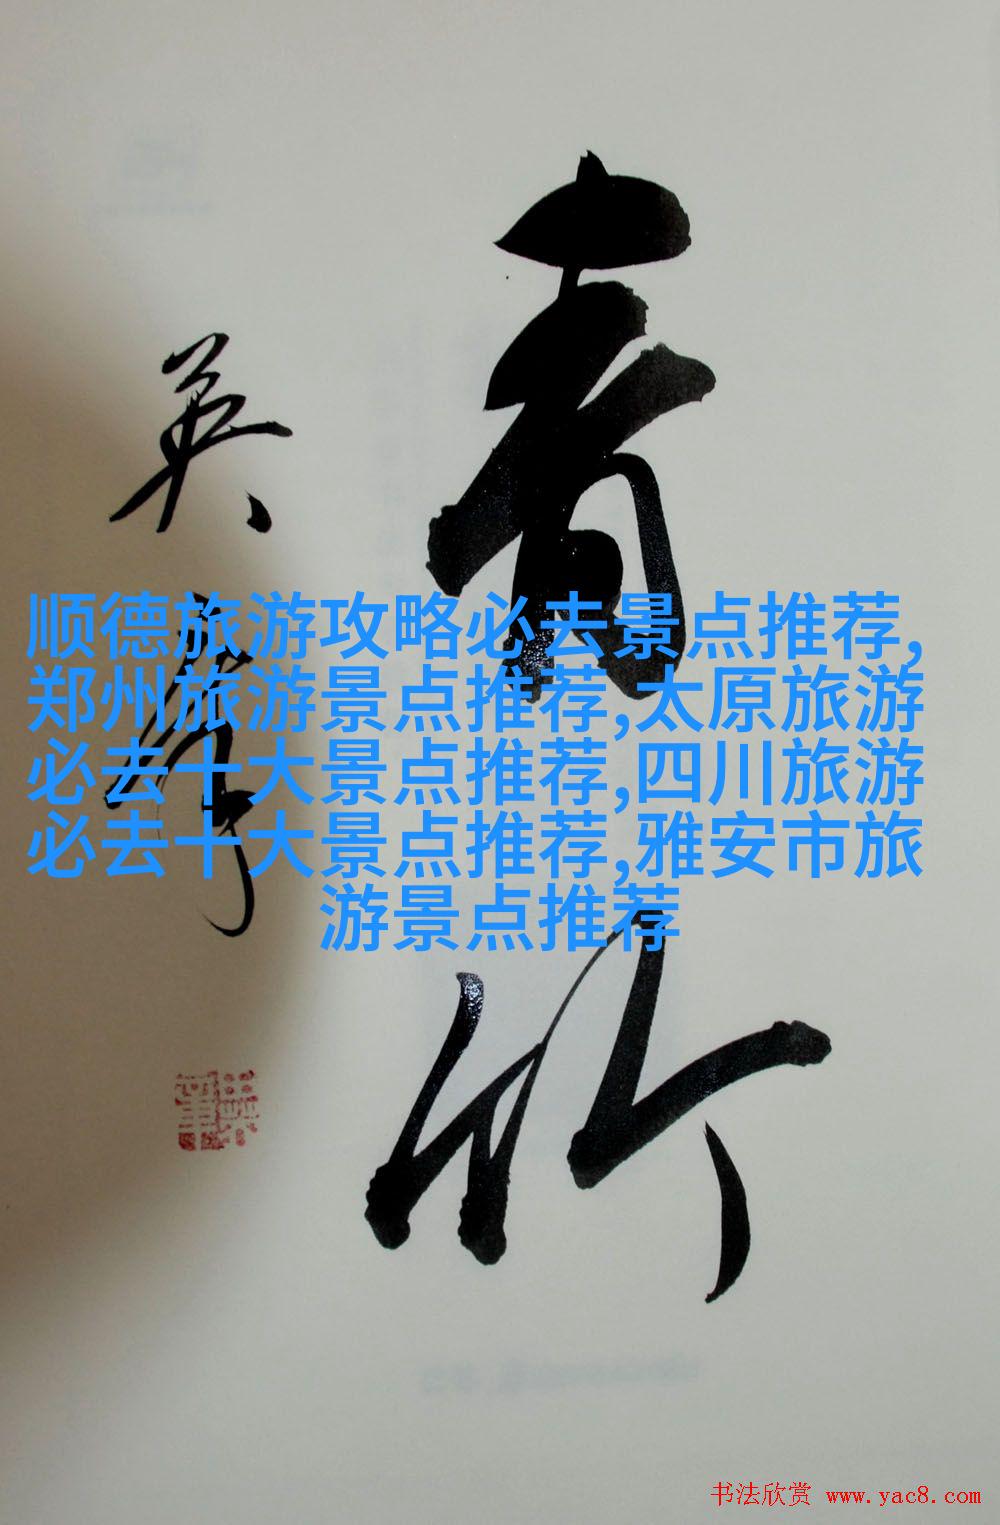 青竹
英
顺德旅游攻略必去景点推荐,
郑州旅游景点推荐,太原旅游
必去十大景点推荐,四川旅游
必去十大景点推荐,雅安市旅
游景点推荐
书法欣赏 www.yac8.com